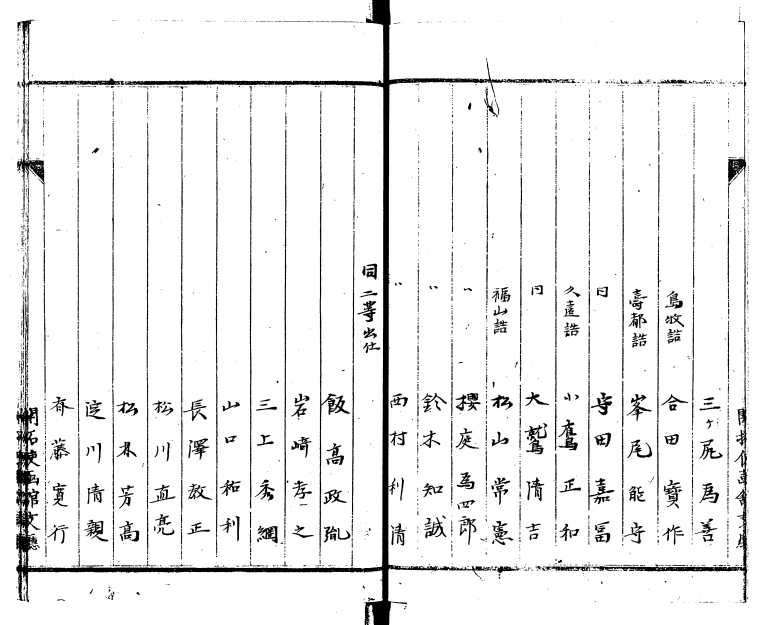 三ヶ尻為善
島牧詰 合田寶作
壽都詰 峯尾能守
同 守田嘉冨
久遠詰 小鷹正和
同 大鷲清吉
福山詰 松山常憲
〃 櫻庭為四郎
〃 鈴木知誠
〃 西村利清
同二等出仕
飯高政胤
岩﨑孝之
三上秀綱
山口祐利
長澤教正
松川直亮
松木芳高
淀川清親
斉藤實行
開拓使函館支廳